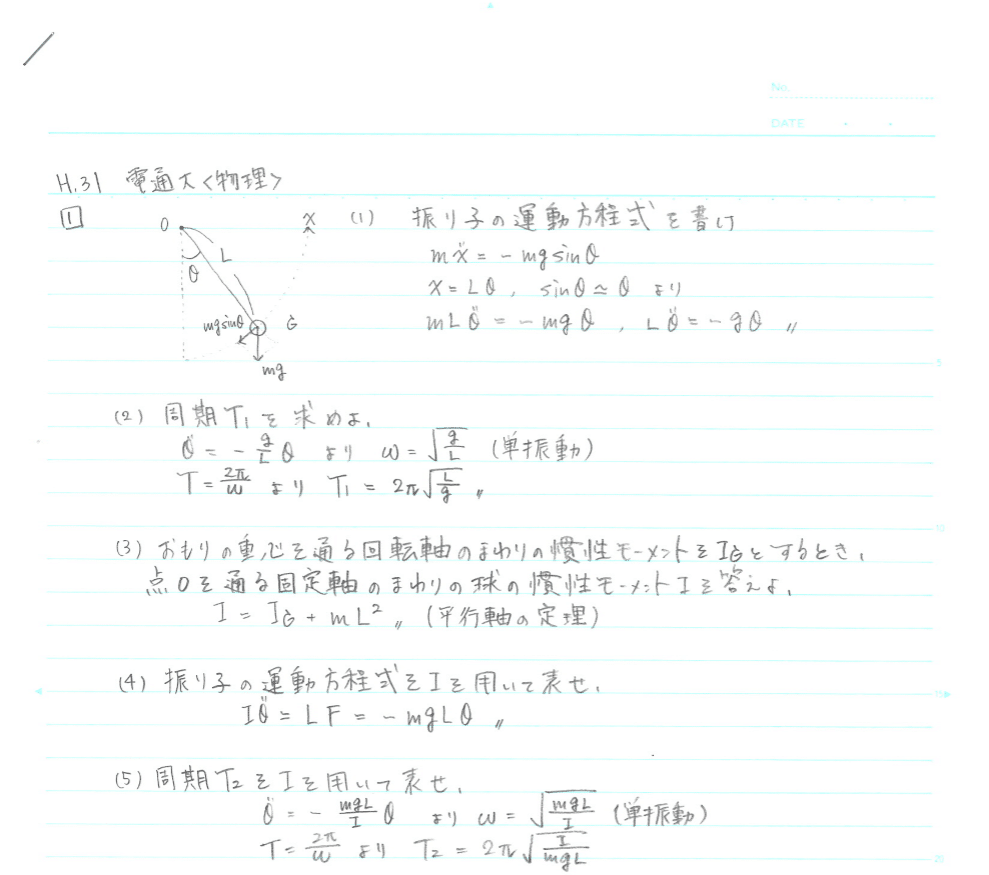 No.
DATE
H.31 電通大<物理>
1
O X L θ mgsinθ G mg
(1) 振り子の運動方程式を書け
mẍ = - mg sinθ
x = Lθ , sinθ ≃ θ より
mLθ̈ = - mgθ , Lθ̈ = - gθ 〃
5
(2) 周期T₁を求めよ.
θ̈ = - g/L θ より ω = √(g/L) (単振動)
T = 2π/ω より T₁ = 2π√(L/g) 〃
10
(3) おもりの重心を通る回転軸のまわりの慣性モーメントをI_Gとするとき,
点Oを通る固定軸のまわりの球の慣性モーメントIを答えよ.
I = I_G + mL² 〃 (平行軸の定理)
(4) 振り子の運動方程式をIを用いて表せ.
15
Iθ̈ = LF = - mgLθ 〃
(5) 周期T₂をIを用いて表せ.
θ̈ = - mgL/I θ より ω = √(mgL/I) (単振動)
T = 2π/ω より T₂ = 2π√(I/mgL)
20